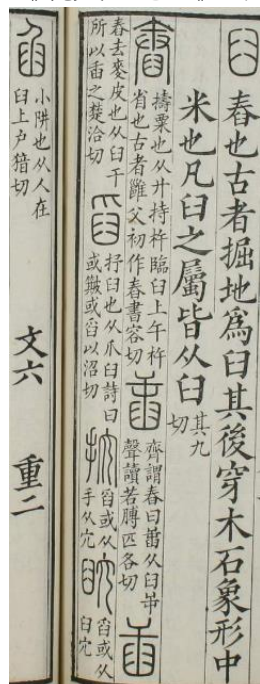 臼 舂也古者掘地爲臼其後穿木石象形中
米也凡臼之屬皆从臼 其九
切
舂 擣粟也从廾持杵臨臼上午杵
省也古者雝父初作舂書容切
𦥛 齊謂舂曰𦥛从臼屰
聲讀若膊匹各切
臿 舂去麥皮也从臼干
所以臿之楚洽切
舀 抒臼也从爪臼詩曰
或簸或舀以沼切
抭 舀或从
手从宂
舀或从
臼宂
臽 小阱也从人在
臼上户韽切
文六 重二